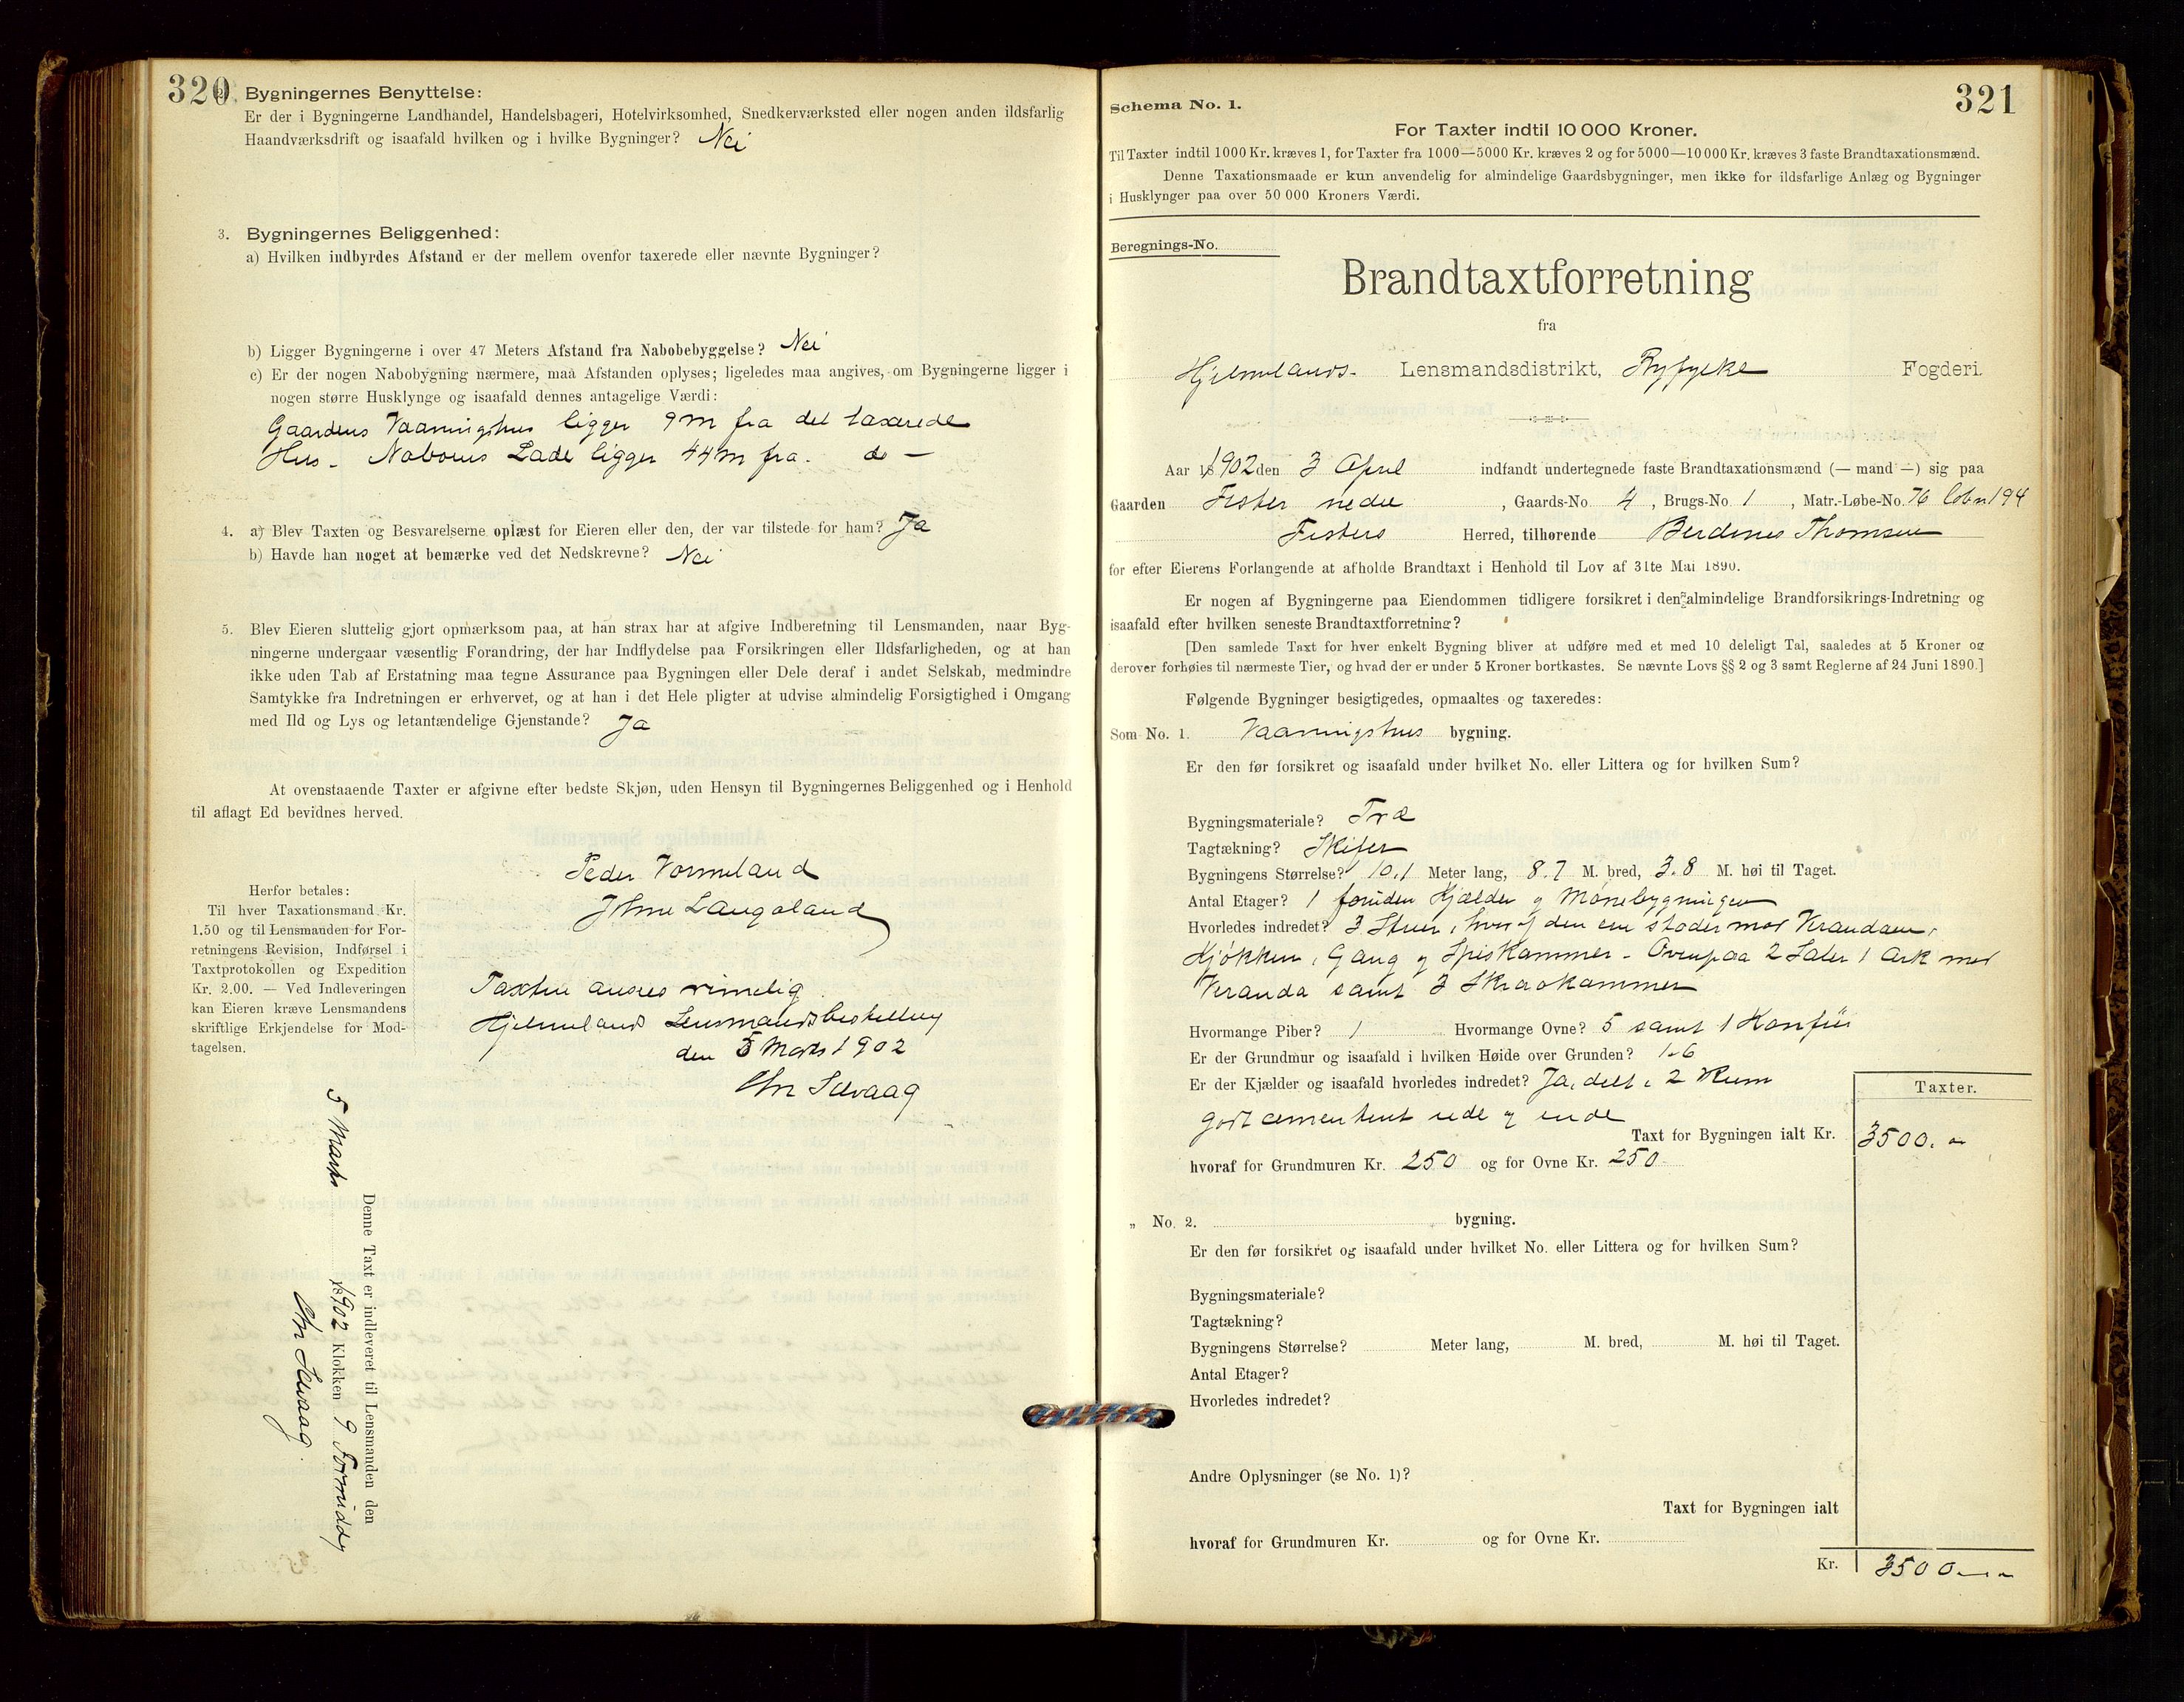 320
2. Bygningernes Benyttelse:
Er der i Bygningerne Landhandel, Handelsbageri, Hotelvirksomhed, Snedkerværksted eller nogen anden ildsfarlig
Haandværksdrift og isaafald hvilken og i hvilke Bygninger? Nei
3. Bygningernes Beliggenhed:
a) Hvilken indbyrdes Afstand er der mellem ovenfor taxerede eller nævnte Bygninger?
b) Ligger Bygningerne i over 47 Meters Afstand fra Nabobebyggelse? Nei
c) Er der nogen Nabobygning nærmere, maa Afstanden oplyses; ligeledes maa angives, om Bygningerne ligger i
nogen større Husklynge og isaafald dennes antagelige Værdi:
Gaardens Vaaningshus ligger 9 m fra det taxerede
Hus - Naboens Lade ligger 44 m fra do -
4. a) Blev Taxten og Besvarelserne oplæst for Eieren eller den, der var tilstede for ham? Ja
b) Havde han noget at bemærke ved det Nedskrevne? Nei
5. Blev Eieren sluttelig gjort opmærksom paa, at han strax har at afgive Indberetning til Lensmanden, naar Byg-
ningerne undergaar væsentlig Forandring, der har Indflydelse paa Forsikringen eller Ildsfarligheden, og at han
ikke uden Tab af Erstatning maa tegne Assurance paa Bygningen eller Dele deraf i andet Selskab, medmindre
Samtykke fra Indretningen er erhvervet, og at han i det Hele pligter at udvise almindelig Forsigtighed i Omgang
med Ild og Lys og letantændelige Gjenstande? Ja
At ovenstaaende Taxter er afgivne efter bedste Skjøn, uden Hensyn til Bygningernes Beliggenhed og i Henhold
til aflagt Ed bevidnes herved.
Peder Vormeland
Langeland
Herfor betales:
Til hver Taxationsmand Kr.
1.50 og til Lensmanden for For-
retningens Revision, Indførsel i
Taxtprotokollen og Expedition
Kr. 2.00. — Ved Indleveringen
kan Eieren kræve Lensmandens
skriftlige Erkjendelse for Mod-
tagelsen.
Taxten ansees rimelig
Hjelmelands Lensmandsbestilling
den 5 Marts 1902
Chr Selvaag
Denne Taxt er indleveret til Lensmanden den
5 Marts 1902 Klokken 9 Formiddg
Chr Selvaag.
321
Schema No. 1.
For Taxter indtil 10 000 Kroner.
Til Taxter indtil 1000 Kr. kræves 1, for Taxter fra 1000—5000 Kr. kræves 2 og for 5000—10 000 Kr. kræves 3 faste Brandtaxationsmænd.
Denne Taxationsmaade er kun anvendelig for almindelige Gaardsbygninger, men ikke for ildsfarlige Anlæg og Bygninger
i Husklynger paa over 50 000 Kroners Værdi.
Beregnings-No.
Brandtaxtforretning
fra
Hjelmelands- Lensmandsdistrikt, Ryfylke Fogderi.
Aar 1902 den 3 April indfandt undertegnede faste Brandtaxationsmænd (— mand —) sig paa
Gaarden Fister nedre, Gaards-No 4, Brugs-No 1, Matr.-Løbe-No. 76 194
Fisters Herred, tilhørende Berdines Thomsen
for efter Eierens Forlangende at afholde Brandtaxt i Henhold til Lov af 31te Mai 1890.
Er nogen af Bygningerne paa Eiendommen tidligere forsikret i den almindelige Brandforsikrings-Indretning og
isaafald efter hvilken seneste Brandtaxtforretning?
[Den samlede Taxt for hver enkelt Bygning bliver at udføre med et med 10 deleligt Tal, saaledes at 5 Kroner og
derover forhøies til nærmeste Tier, og hvad der er under 5 Kroner bortkastes. Se nævnte Lovs §§ 2 og 3 samt Reglerne af 24 Juni 1890.]
Følgende Bygninger besigtigedes, opmaaltes og taxeredes:
Som No. 1. Vaaningshus bygning.
Er den før forsikret og isaafald under hvilket No. eller Littera og for hvilken Sum?
Bygningsmateriale? Træ
Tagtækning? Skifer
Bygningens Størrelse? 10.1 Meter lang, 8.7 M. bred, 3.8 M. høi til Taget.
Antal Etager? 1 foruden Kjælder og Mønebygningen
Hvorledes indredet? 3 Stuer, hvoraf den ene støder mod Verandaen,
Kjøkken, Gang og Spiskammer - Ovenpaa 2 Saler 1 Ark med
Veranda samt 3 Skraakammer
Hvormange Piber? 1 Hvormange Ovne? 5 samt 1 Komfür
Er der Grundmur og isaafald i hvilken Høide over Grunden? 1.6
Er der Kjælder og isaafald hvorledes indredet? Ja, delt i 2 Rum
godt cementeret ude og inde
Taxter.
Taxt for Bygningen ialt Kr. 3500. -
hvoraf for Grundmuren Kr. 250 og for Ovne Kr. 250
„ No. 2. bygning.
Er den før forsikret og isaafald under hvilket No. eller Littera og for hvilken Sum?
Bygningsmateriale?
Tagtækning?
Bygningens Størrelse? Meter lang, M. bred, M. høi til Taget.
Antal Etager?
Hvorledes indredet?
Andre Oplysninger (se No. 1)?
Taxt for Bygningen ialt
hvoraf for Grundmuren Kr. og for Ovne Kr.
Kr. 3500 - -